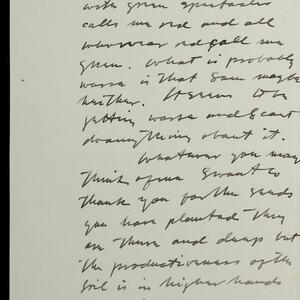 with green spectacles
calls me red and all
who wear red call me
green. What is probably
worse is that I am maybe
neither. It seems to be
getting worse and I can't
do anything about it.
Whatever you may
think of me I want to
thank you for the seeds
you have planted They
are there and deep but
the productiveness of the
soil is in higher hands